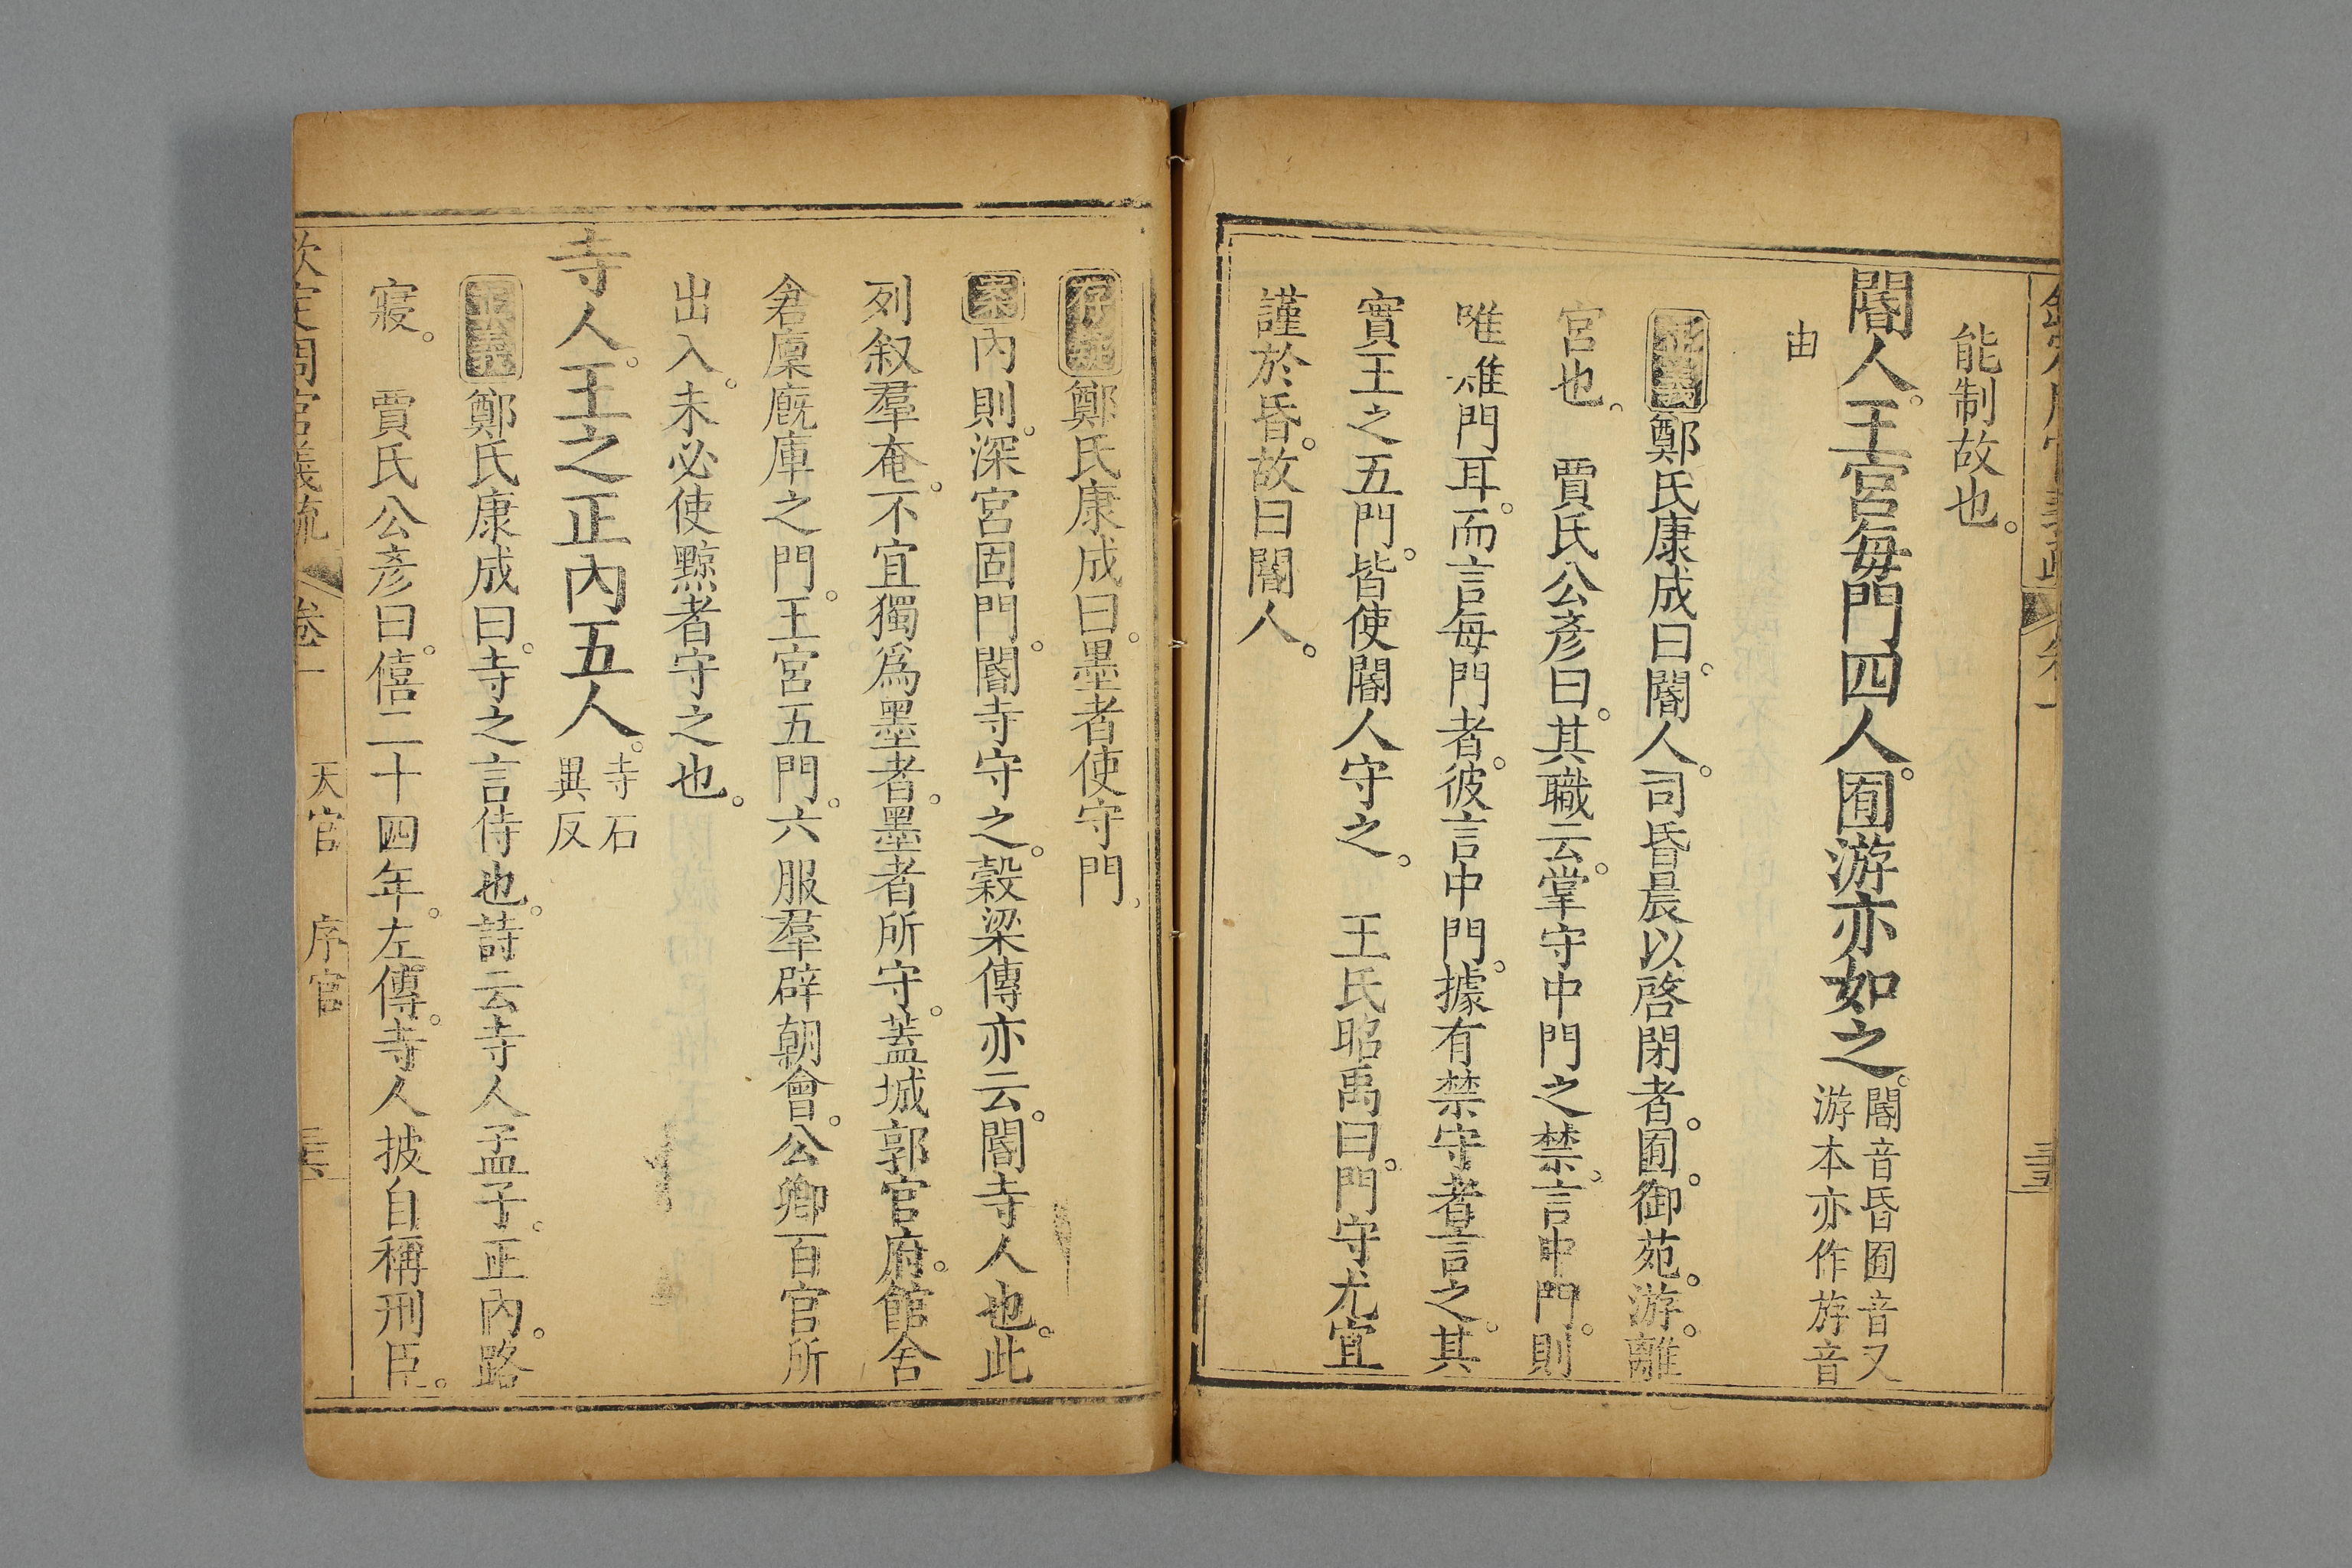 能制故也。
閽人。王宮每門四人。囿游亦如之。閽音昏囿音又
游本亦作斿音
由
正義鄭氏康成曰。閽人。司昏晨以啓閉者。囿。御苑。游。離
宮也。　賈氏公彥曰。其職云。掌守中門之禁。言中門。則
唯雉門耳。而言每門者。彼言中門。據有禁守者言之。其
實王之五門。皆使閽人守之。　王氏昭禹曰。門守尤宜
謹於昏。故曰閽人。
存疑鄭氏康成曰。墨者使守門。
案內則。深宮固門。閽寺守之。穀梁傳亦云。閽寺人也。此
列叙羣奄。不宜獨爲墨者。墨者所守。蓋城郭官府。館舍
倉廩廐庫之門。王宮五門。六服羣辟朝會。公卿百官所
出入。未必使黥者守之也。
寺人。王之正內五人。寺石
異反
正義鄭氏康成曰。寺之言侍也。詩云寺人孟子。正內。路
寢。　賈氏公彥曰。僖二十四年。左傳。寺人披自稱刑臣。
欽定周官義疏　卷一　天官　序官